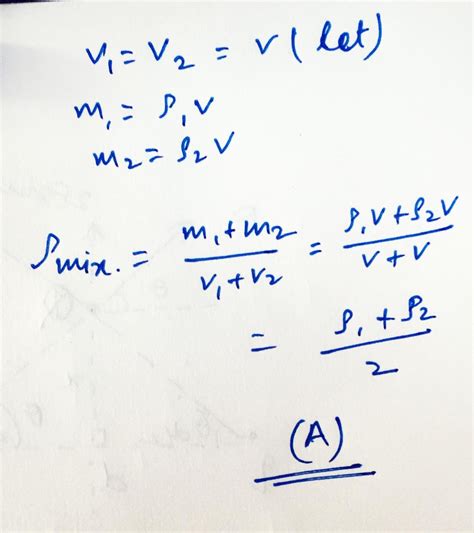 V₁ = V₂ = V (let)
m₁ = ρ₁V
m₂ = ρ₂V
ρmix. = (m₁+m₂)/(V₁+V₂) = (ρ₁V+ρ₂V)/(V+V)
= (ρ₁+ρ₂)/2
(A)